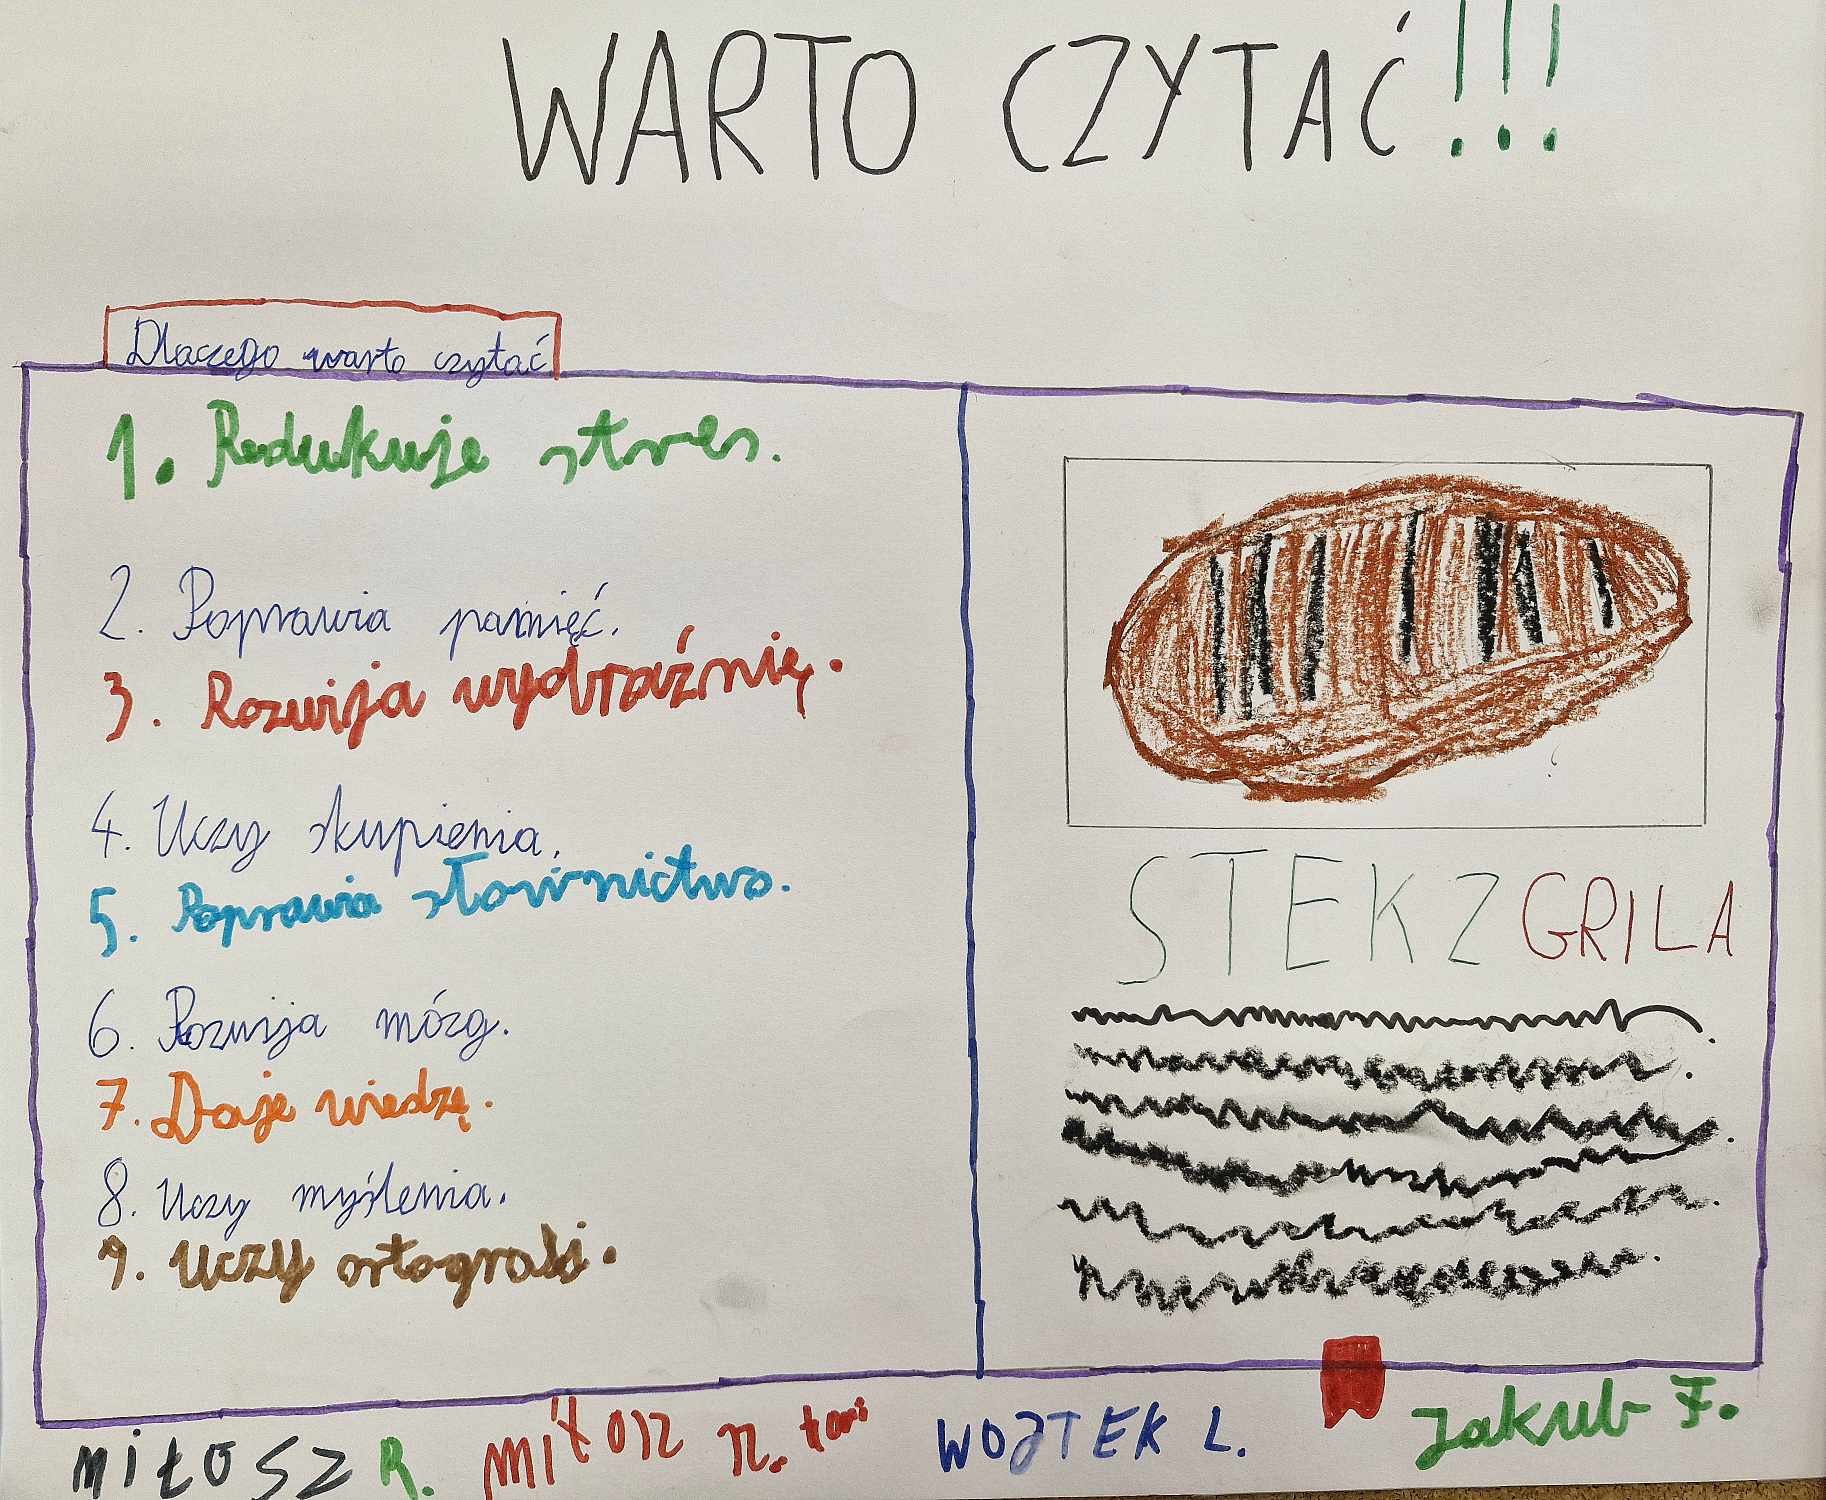 WARTO CZYTAĆ!!!
Dlaczego warto czytać
1. Redukuje stres.
2. Poprawia pamięć.
3. Rozwija wyobraźnię.
4. Uczy skupienia.
5. Poprawia słownictwo.
6. Rozwija mózg.
7. Daje wiedzę.
8. Uczy myślenia.
9. Uczy ortografi.
STEK Z GRILA
MIŁOSZ R. MIŁOSZ N. WOJTEK L. Jakub F.